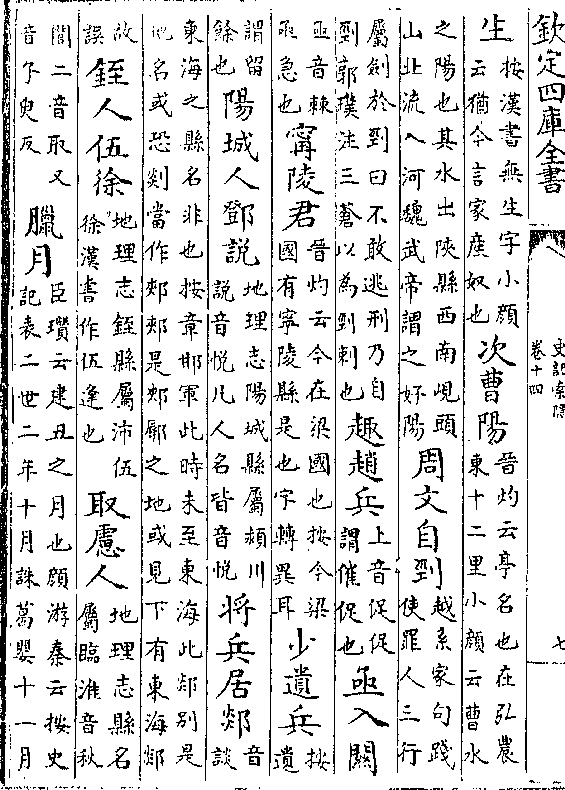 欽定四庫全書
史記索隱
卷十四
七
生按漢書無生字小顔云猶今言家產奴也次曹陽晉灼云亭名也在弘農東十二里小顔云曹水
之陽也其水出陝縣西南峴頭山北流入河魏武帝謂之好陽周文自剄越系家句踐使罪人三行
屬劍於剄曰不敢逃刑乃自剄郭璞注三蒼以為剄刺也趣趙兵上音促促謂催促也亟入關
亟音棘亟急也甯陵君晉灼云今在梁國也按今梁國有寧陵縣是也字轉異耳少遺兵按遺
謂留餘也陽城人鄧說地理志陽城縣屬頴川說音悅凡人名皆音悅將兵居郯音談
東海之縣名非也按章邯軍此時未至東海此郯別是地名或恐郯當作郟郟是郟鄏之地或見下有東海郯
故誤銍人伍徐地理志銍縣屬沛伍徐漢書作伍逢也取慮人地理志縣名屬臨淮音秋
閭二音取又音子臾反臘月臣瓚云建丑之月也顔游秦云按史記表二世二年十月誅葛嬰十一月